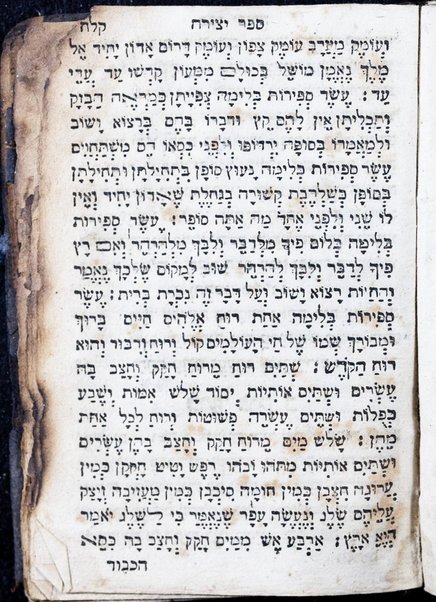 ספר יצירה קלח
וְעוֹמֶק מַעֲרָב עוֹמֶק צָפוֹן וְעוֹמֶק דָּרוֹם אָדוֹן יָחִיד אֵל
מֶלֶךְ נֶאֱמָן מוֹשֵׁל בְּכוּלָם מִמְּעוֹן קָדְשׁוֹ עַד עֲדֵי
עַד: עֶשֶׂר סְפִירוֹת בְּלִימָה צְפִיָּיתָן כְּמַרְאֵה הַבָּזָק
וְתַכְלִיתָן אֵין לָהֶם קֵץ וּדְבָרוֹ בָּהֶם בְּרָצוֹא וָשׁוֹב
וּלְמַאֲמָרוֹ כְּסוּפָה יִרְדּוֹפוּ וְלִפְנֵי כִסְאוֹ הֵם מִשְׁתַּחֲוִים
עֶשֶׂר סְפִירוֹת בְּלִימָה נָעוּץ סוֹפָן בִּתְחִילָתָן וּתְחִילָתָן
בְּסוֹפָן כְּשַׁלְהֶבֶת קְשׁוּרָה בְּגַחֶלֶת שֶׁאָדוֹן יָחִיד וְאֵין
לוֹ שֵׁנִי וְלִפְנֵי אֶחָד מָה אַתָּה סוֹפֵר: עֶשֶׂר סְפִירוֹת
בְּלִימָה בְּלוֹם פִּיךָ מִלְּדַבֵּר וְלִבְּךָ מִלְּהַרְהֵר וְאִם רָץ
פִּיךָ לְדַבֵּר וְלִבְּךָ לְהַרְהֵר שׁוּב לַמָּקוֹם שֶׁלְּכָךְ נֶאֱמַר
וְהַחַיּוֹת רָצוֹא וָשׁוֹב וְעַל דָּבָר זֶה נִכְרַת בְּרִית: עֶשֶׂר
סְפִירוֹת בְּלִימָה אַחַת רוּחַ אֱלֹהִים חַיִּים בָּרוּךְ
וּמְבוֹרָךְ שְׁמוֹ שֶׁל חַי הָעוֹלָמִים קוֹל וְרוּחַ וְדִבּוּר וְהוּא
רוּחַ הַקֹּדֶשׁ: שְׁתַּיִם רוּחַ מֵרוּחַ חָקַק וְחָצַב בָּהּ
עֶשְׂרִים וּשְׁתַּיִם אוֹתִיּוֹת יְסוֹד שָׁלֹשׁ אִמּוֹת וְשֶׁבַע
כְּפֻלּוֹת וּשְׁתֵּים עֶשְׂרֵה פְּשׁוּטוֹת וְרוּחַ לְכָל אַחַת
מֵהֶן: שָׁלֹשׁ מַיִם מֵרוּחַ חָקַק וְחָצַב בָּהֶן עֶשְׂרִים
וּשְׁתַּיִם אוֹתִיּוֹת מִתֹּהוּ וּבֹהוּ רֶפֶשׁ וָטִיט חֲקָקָן כְּמִין
עֲרוּגָה חֲצָבָן כְּמִין חוֹמָה סִיכְּכָן כְּמִין מַעֲזִיבָה וְיָצַק
עֲלֵיהֶם שֶׁלֶג וְנַעֲשָׂה עָפָר שֶׁנֶּאֱמַר כִּי לַשֶּׁלֶג יֹאמַר
הֱוֵא אָרֶץ: אַרְבַּע אֵשׁ מִמַּיִם חָקַק וְחָצַב בָּהּ כִּסֵּא
הכבוד